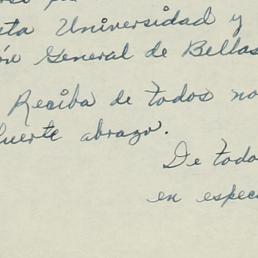 ta Universidad y
ón General de Bellas
Reciba de todos no
fuerte abrazo.
De todo
en especi